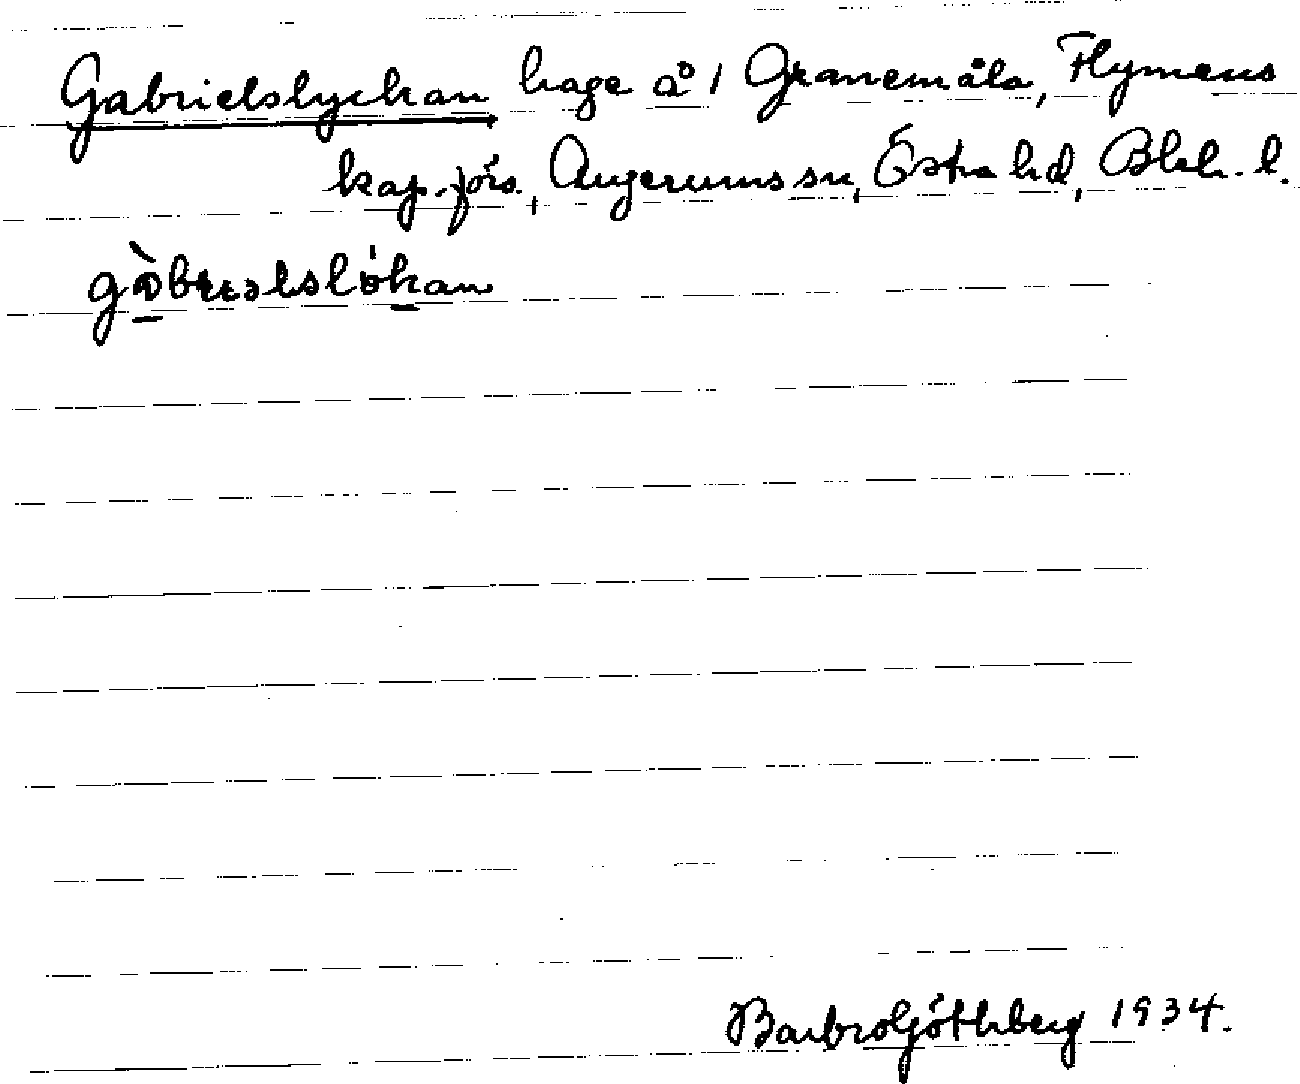 Gabrielslyckan hage å 1 Granemåla, Flymens
kap.förs., Augerums sn, Östra hd, Blek. l.
gàbrɩəlslökan
Barbro Göthberg 1934.